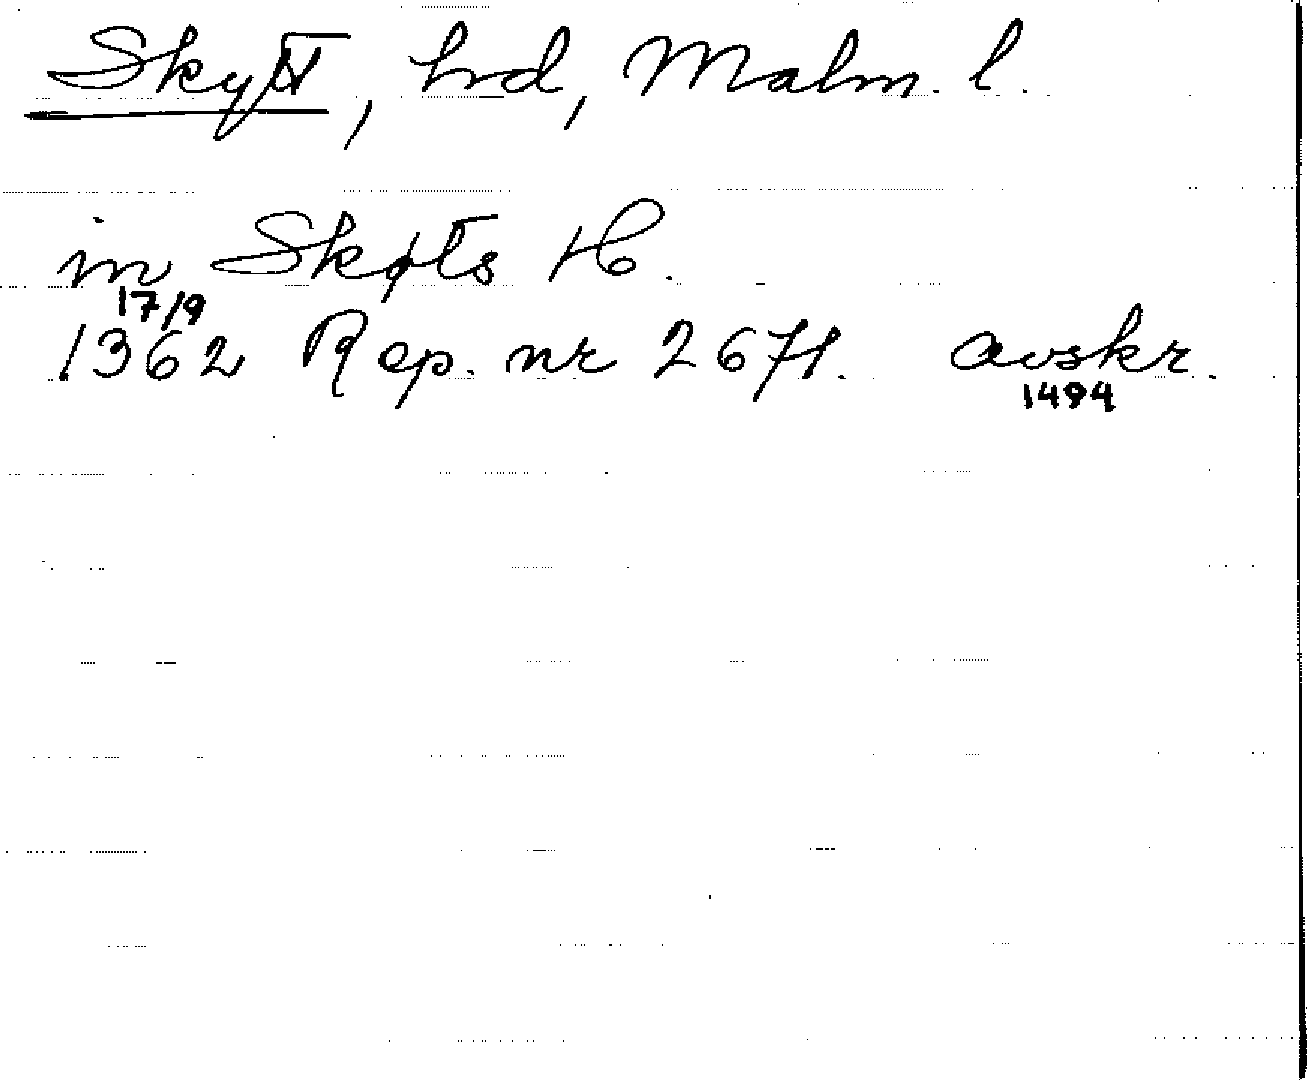 Skytt, hd, Malm. l.
in Skøts H.
17/9
1362 Rep. nr 2671. avskr.
1494